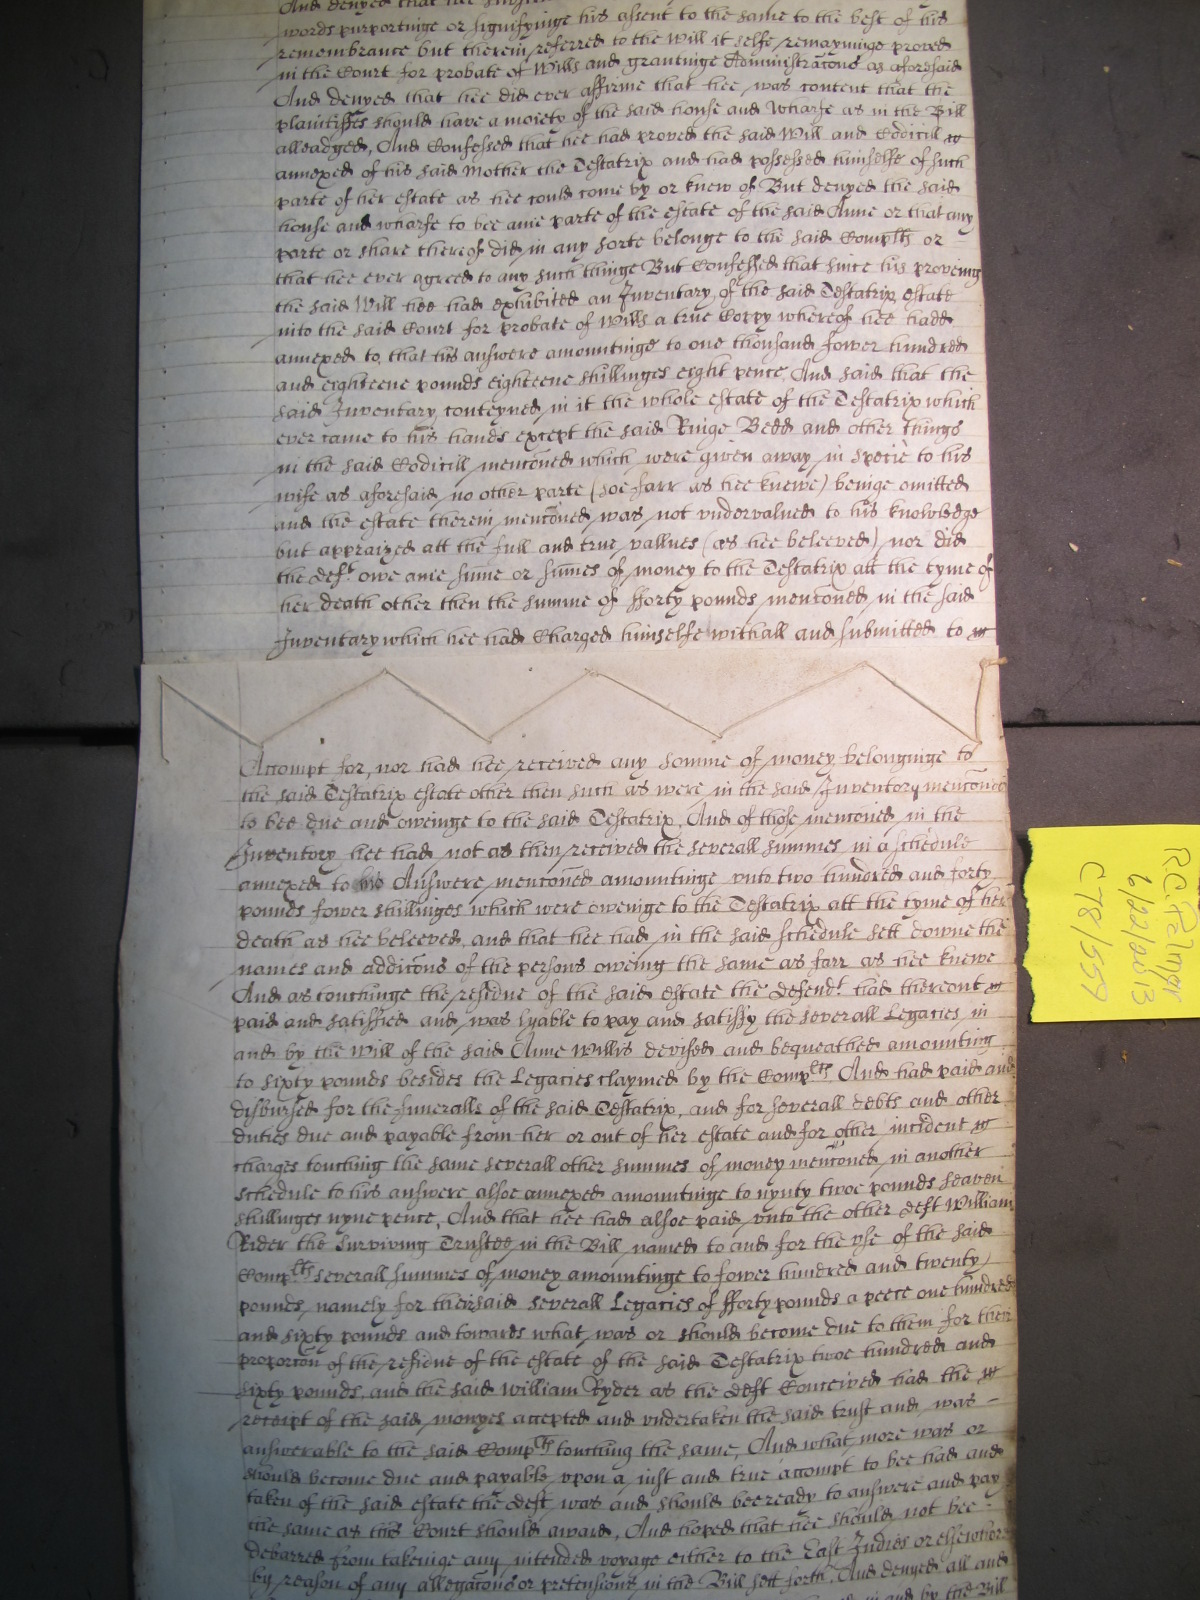 And denyed that hee
words purportinge or signifyinge his assent to the same to the best of his
remembrance but therein referred to the Will it selfe remayninge proved
in the Court for probate of Wills and grantinge Administracons as aforesaid
And denyed that hee did ever affirme that hee was content that the
plaintiffes should have a moiety of the said house and Wharfe as in the Bill
alleadged, And Confessed that hee had proved the said Will and Codicill
annexed of his said Mother the Testatrix and had possessed himselfe of such
parte of her estate as hee could come by or knew of But denyed the said
house and wharfe to bee anie parte of the estate of the said Anne or that any
parte or share thereof did in any sorte belonge to the said Complts or
that hee ever agreed to any such thinge But Confessed that since his proveing
the said Will hee had exhibited an Inventary of the said Testatrix estate
into the said Court for probate of Wills a true Coppy whereof hee hadd
annexed to that his answere amountinge to one thousand fower hundred
and eighteene pounds eighteene shillinges eight pence, And said that the
said Inventary conteyned in it the whole estate of the Testatrix which
ever came to his hands except the said Ringe Bedd and other things
in the said Codicill menconed which were given away in specie to his
wife as aforesaid no other parte (soe farr as hee knewe) beinge omitted
and the estate therein menconed was not undervalued to his knowledge
but appraized att the full and true vallues (as hee beleeved) nor did
the deft owe anie sume or sumes of money to the Testatrix att the tyme of
her death other then the summe of fforty pounds menconed in the said
Inventary which hee had Charged himselfe withall and submitted to
Accompt for, nor had hee received any somme of money belonginge to
the said Testatrix estate other then such as were in the said Inventory menconed
to bee due and oweinge to the said Testatrix, And of those menconed in the
Inventory hee had not as then received the severall summes in a schedule
annexed to his Answere menconed amountinge unto two hundred and forty
pounds fower shillinges which were oweinge to the Testatrix att the tyme of her
death as hee beleeved and that hee had in the said schedule sett downe the
names and addicons of the persons oweing the same as farr as hee knewe
And as touchinge the residue of the said estate the defendt had thereout
paid and satisfied and was lyable to pay and satisfy the severall Legacies in
and by the Will of the said Anne Willis devised and bequeathed amounting
to sixty pounds besides the Legacies claymed by the Complts And had paid and
disbursed for the funeralls of the said Testatrix, and for severall debts and other
duties due and payable from her or out of her estate and for other incident
charges touching the same severall other summes of money menconed in another
schedule to his answere alsoe annexed amountinge to nynty twoe pounds seaven
shillinges nyne pence, And that hee had alsoe paid unto the other deft William
Rider the surviving Trustee in the Bill named to and for the use of the said
Complts severall summes of money amountinge to fower hundred and twenty
pounds namely for their said severall Legacies of fforty pounds a peece one hundred
and sixty pounds and towards what was or should become due to them for their
proporcon of the residue of the estate of the said Testatrix twoe hundred and
sixty pounds, and the said William Ryder as the deft Conceived had the
receipt of the said monyes accepted and undertaken the said trust and was
answerable to the said Complts touching the same, And what more was or
should become due and payable upon a just and true accompt to bee had and
taken of the said estate the deft was and should bee ready to answere and pay
the same as this Court should award, And hoped that hee should not bee
debarred from takeinge any intended voyage either to the East Indies or elsewhere
by reason of any allegacons or pretensions in the Bill sett forth, And denyed all and
in and by the Bill
R C Palmer
6/22/2013
C78/559